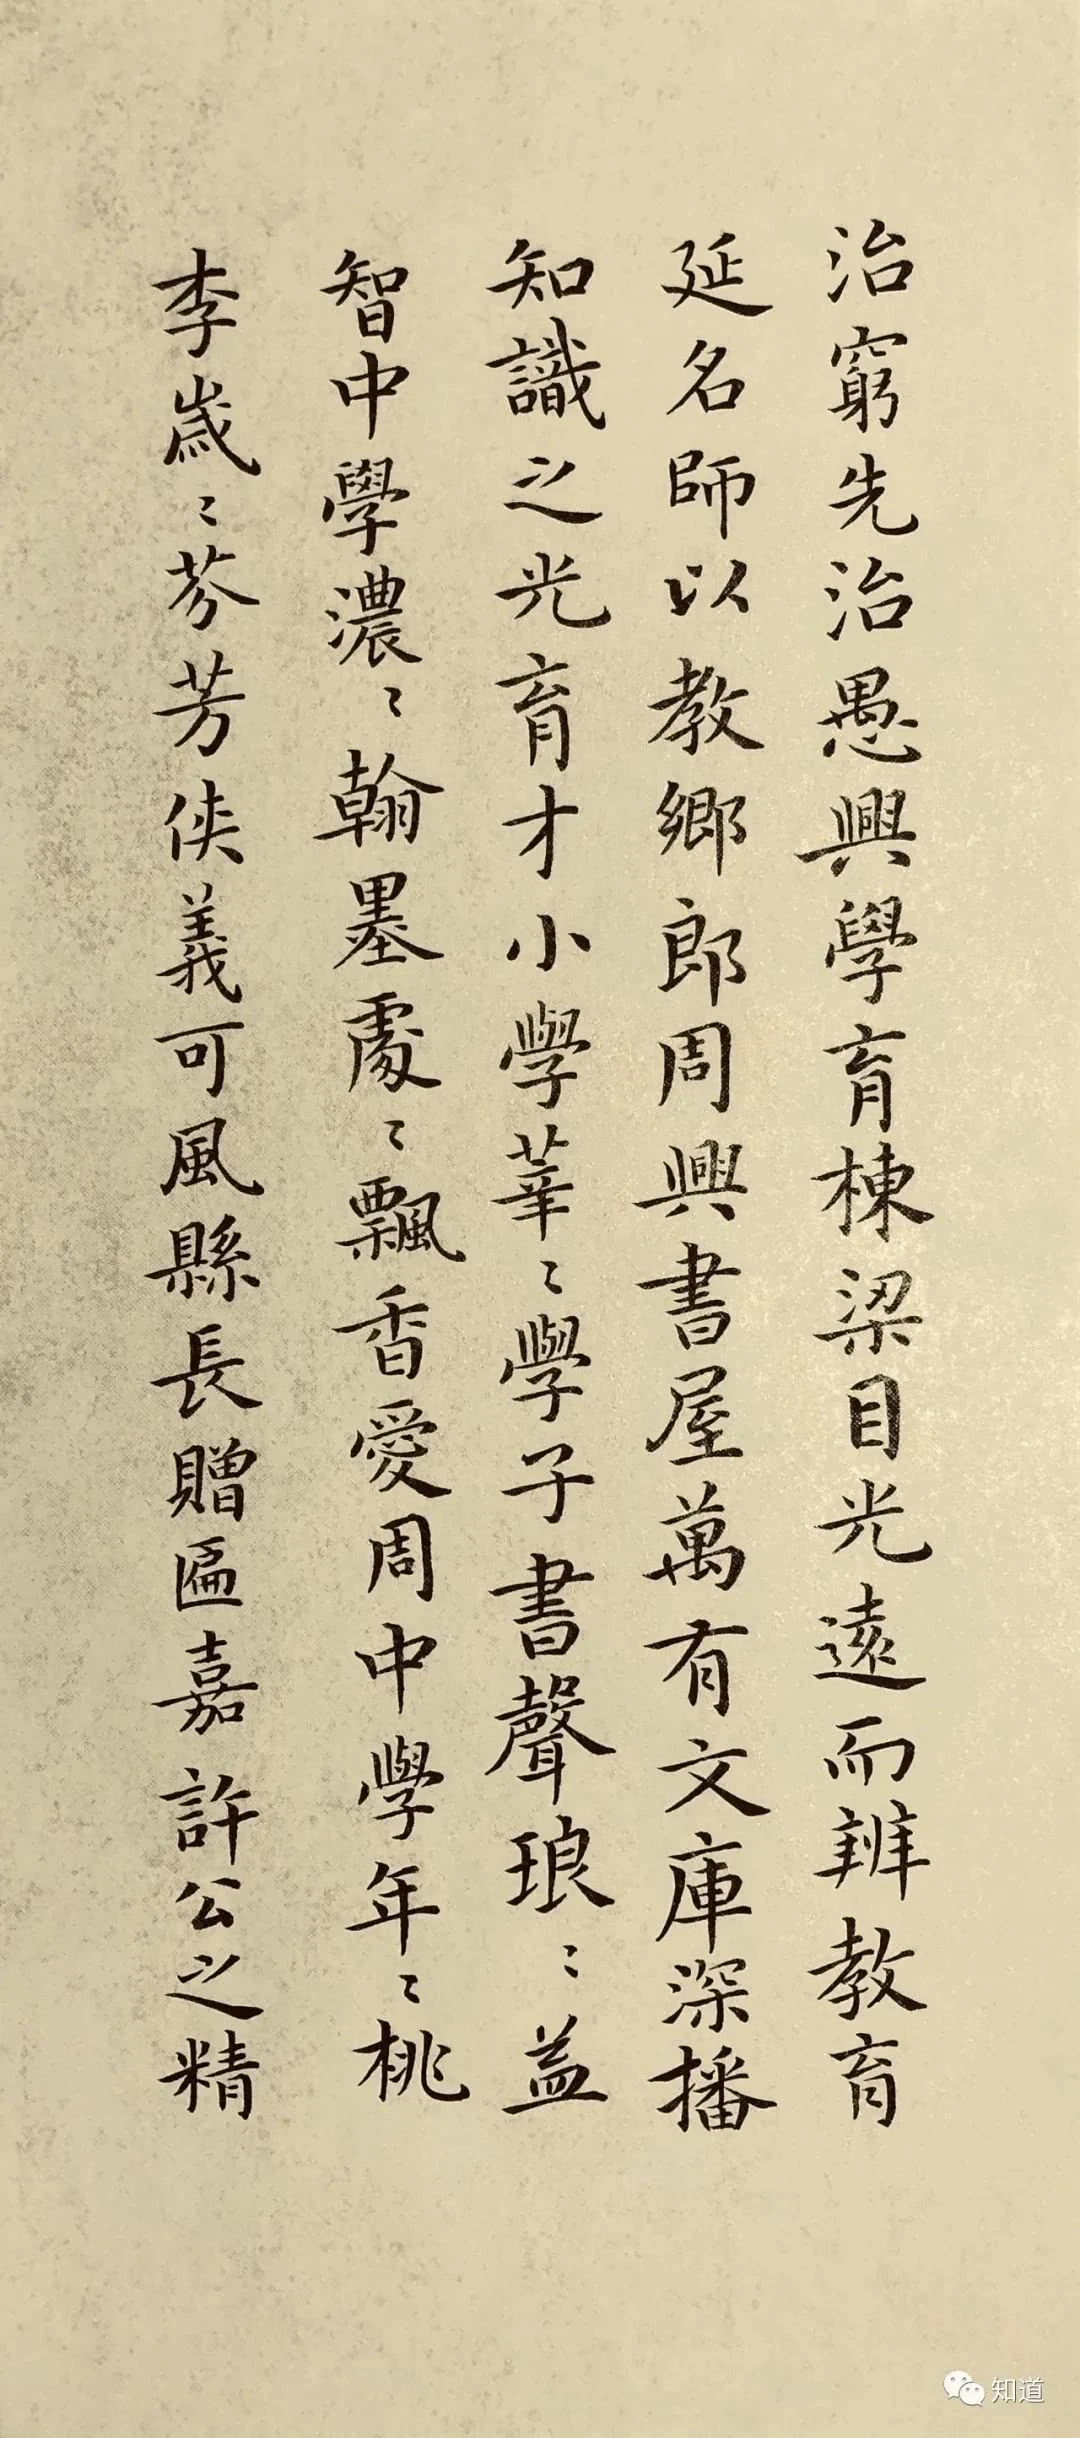 治窮先治愚興學育棟梁目光遠而辨教育
延名師以教鄉郎周興書屋萬有文庫深播
知識之光育才小學莘〻學子書聲琅〻益
智中學濃〻翰墨處〻飄香愛周中學年〻桃
李歲〻芬芳俠義可風縣長贈匾嘉許公之精
知道